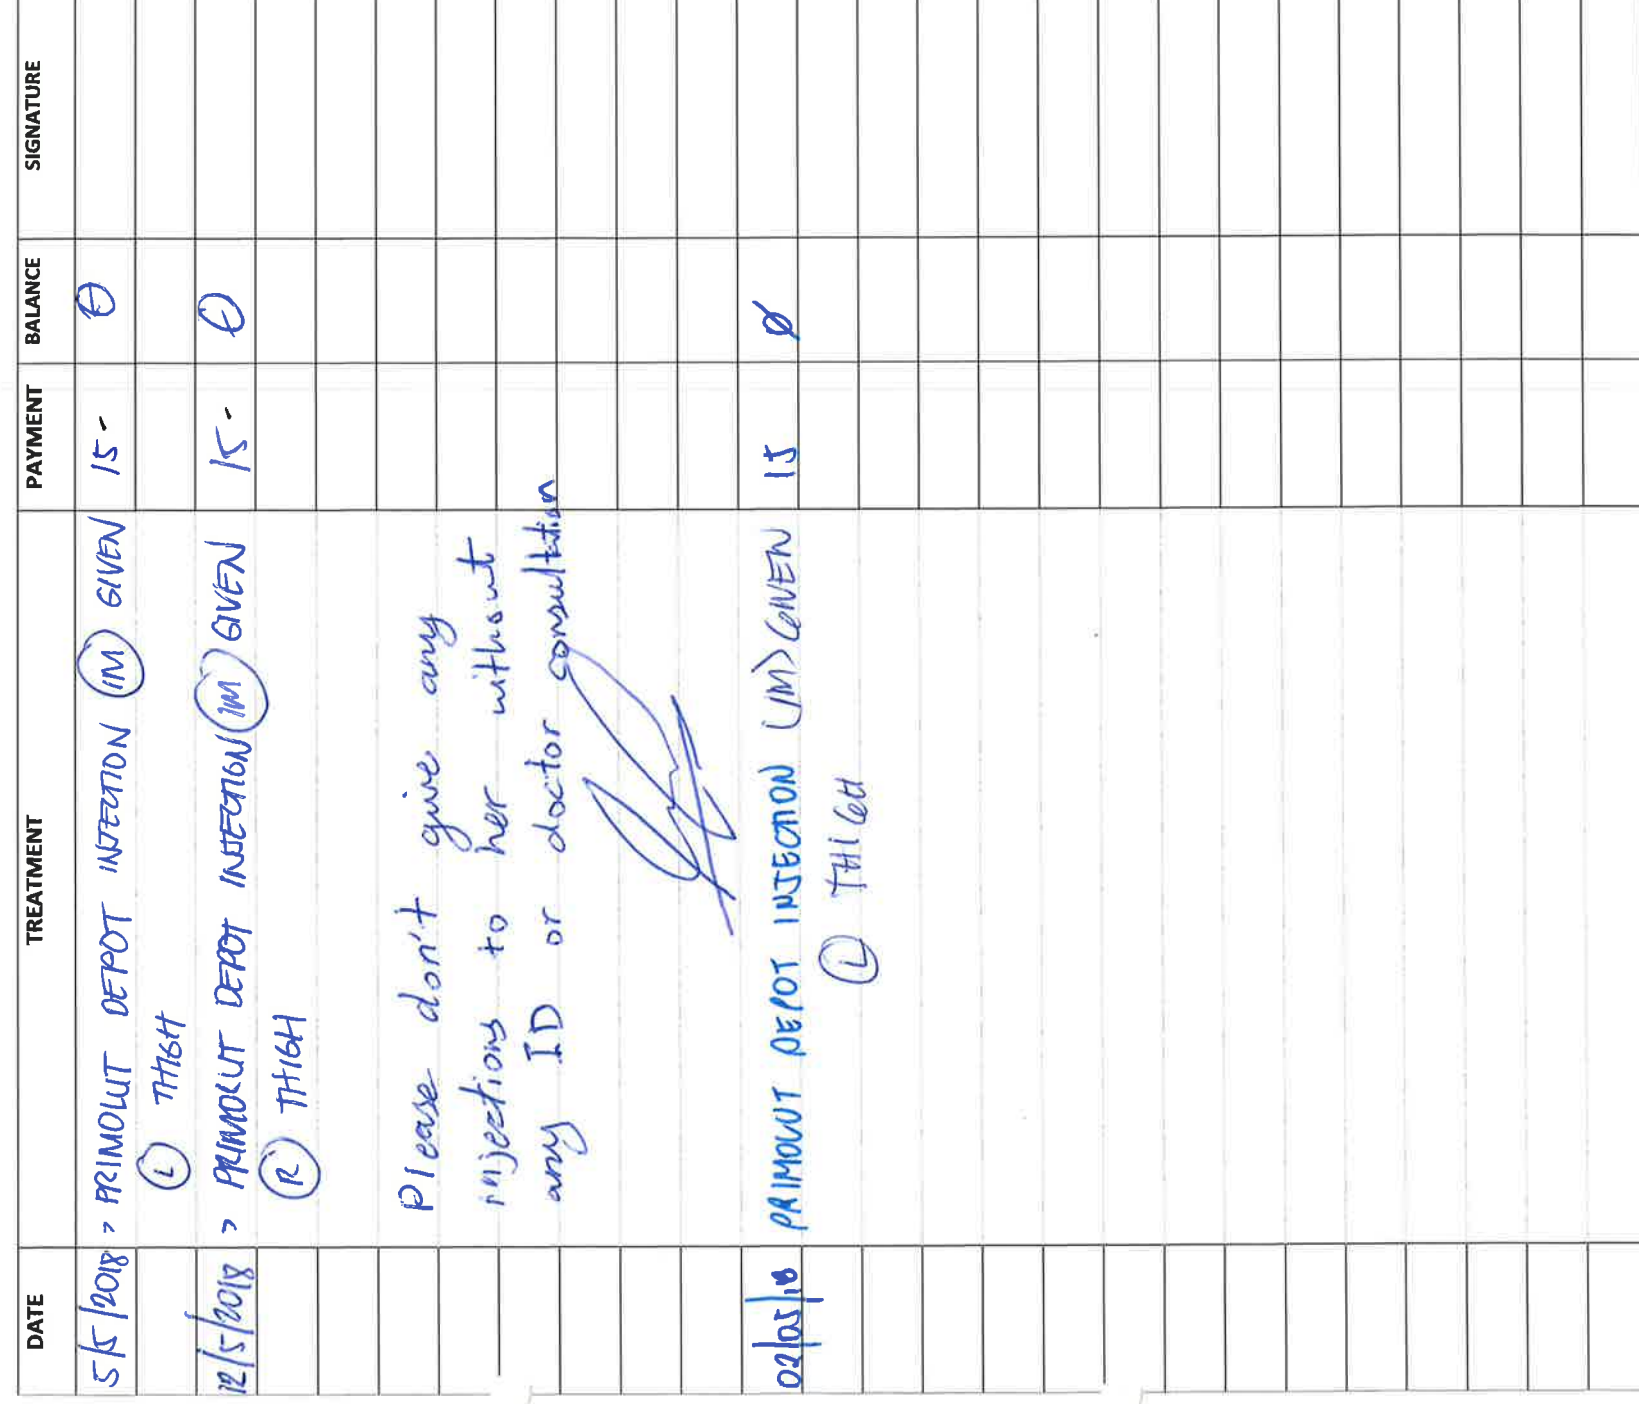 DATE TREATMENT PAYMENT BALANCE SIGNATURE
5/5/2018 > PRIMOLUT DEPOT INJECTION (IM) GIVEN 15- θ
(L) THIGH
12/5/2018 > PRIMOLUT DEPOT INJECTION (IM) GIVEN 15- θ
(R) THIGH
Please don't give any
injections to her without
any ID or doctor consultation
02/05/18 PRIMOLUT DEPOT INJECTION (IM) GIVEN 15 Ø
(L) THIGH